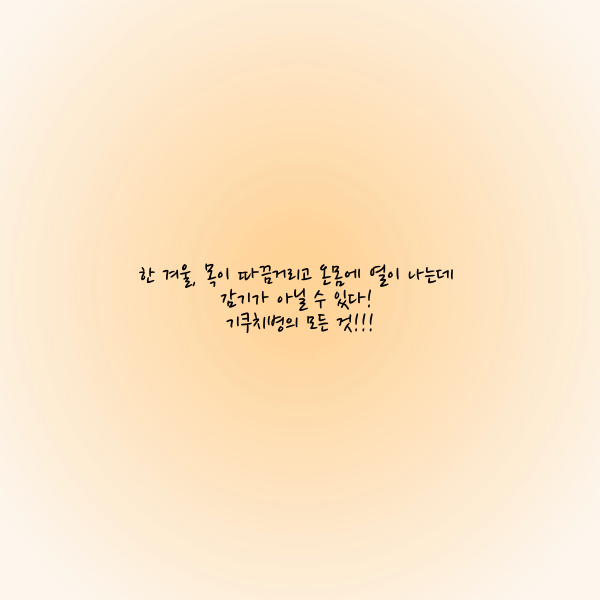 한 겨울, 목이 따끔거리고 온몸에 열이 나는데
감기가 아닐 수 있다!
기쿠치병의 모든 것!!!